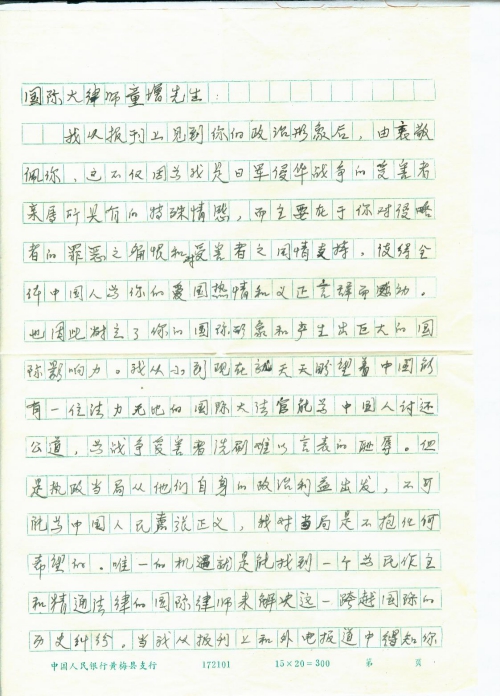 国际大律师童增先生：
我从报刊上见到你的政治形象后，由衷敬
佩你，这不仅因为我是日军侵华战争的受害者
亲属所具有的特殊情愁，而主要在于你对侵略
者的罪恶之痛恨和对受害者之同情支持，使得全
体中国人为你的爱国热情和义正言辞而感动。
也因此树立了你的国际形象和产生出巨大的国
际影响力。我从小到现在就天天盼望着中国能
有一位法力无比的国际大法官能为中国人讨还
公道，为战争受害者洗刷难以言表的耻辱。但
是执政当局从他们自身的政治利益出发，不可
能为中国人民裹说正义，我对当局是不抱任何
希望的。唯一的机遇就是能找到一个为民作主
和精通法律的国际律师来解决这一跨越国际的
历史纠纷，当我从报刊上和外电报道中得知你
中国人民银行黄梅县支行 172101 15×20=300 第 页